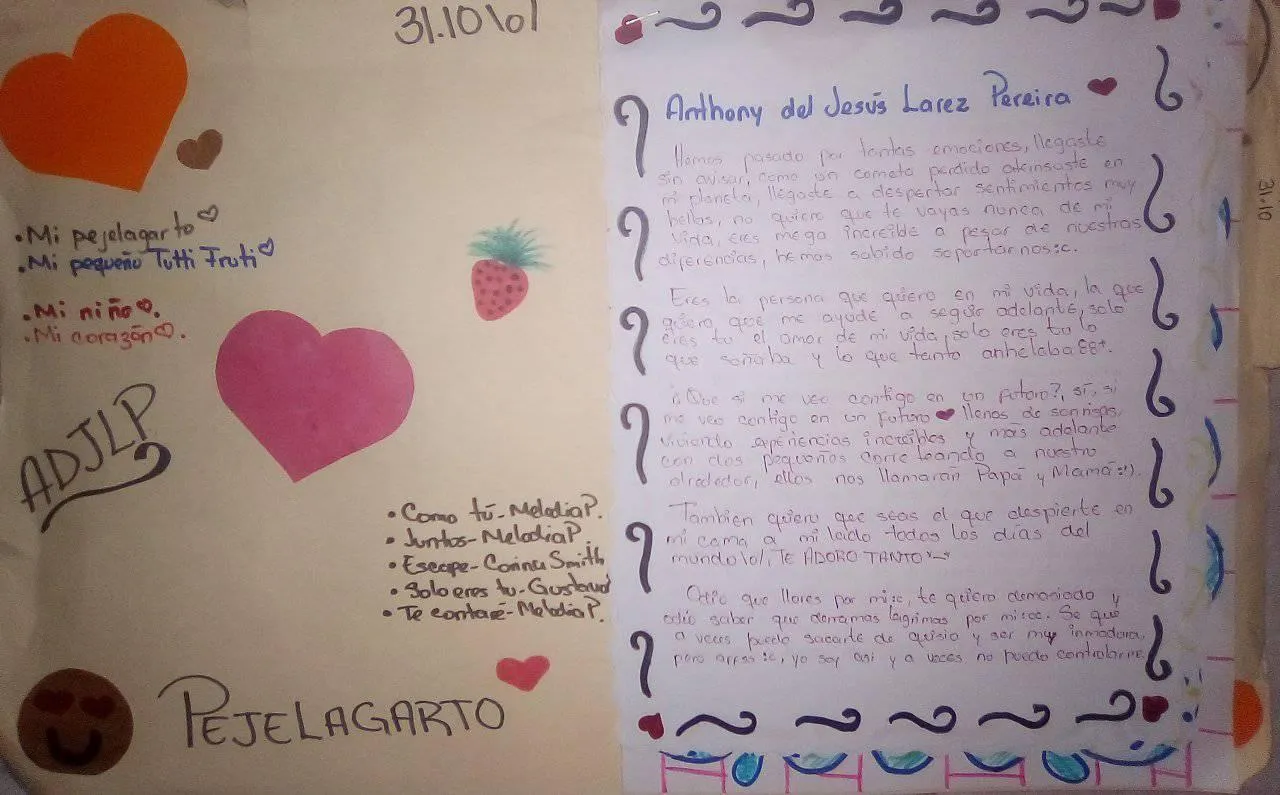 31.10 \o/
• Mi pejelagarto ♡
• Mi pequeño Tutti Fruti ♡
• Mi niño ♡.
• Mi corazón ♡.
ADJLP
• Como tú - Melodia P.
• Juntos - Melodia P.
• Escape - Corina Smith
• Solo eres tu - Gustavo
• Te contaré - Melodia P.
PEJELAGARTO
Anthony del Jesús Larez Pereira ♥
Hemos pasado por tantas emociones, llegaste
sin avisar, como un cometa perdido in
mi planeta, llegaste a despertar sentimientos muy
bellos, no quiero que te vayas nunca de mi
vida, eres mega increible a pesar de nuestras
diferencias, hemos sabido soportarnos :c.
Eres la persona que quiero en mi vida, la que
quiero que me ayude a seguir adelante, solo
eres tu el amor de mi vida, solo eres tu lo
que soñaba y lo que tanto anhelaba
¿Que si me veo contigo en un futuro?, sí, si
me veo contigo en un futuro ♥ llenos de sonrisas,
viviendo experiencias increibles y más adelante
con dos pequeños correteando a nuestro
alrededor, ellos nos llamarán Papá y Mamá :').
Tambien quiero que seas el que despierte en
mi cama a mi lado todos los días del
mundo \o/, TE ADORO TANTO
Odio que llores por mi :c, te quiero demasiado y
odio saber que derramas lágrimas por mi :c. Se que
a veces puedo sacarte de quisio y ser muy
pero :c, yo soy asi y a veces no puedo controlarme.
31.10